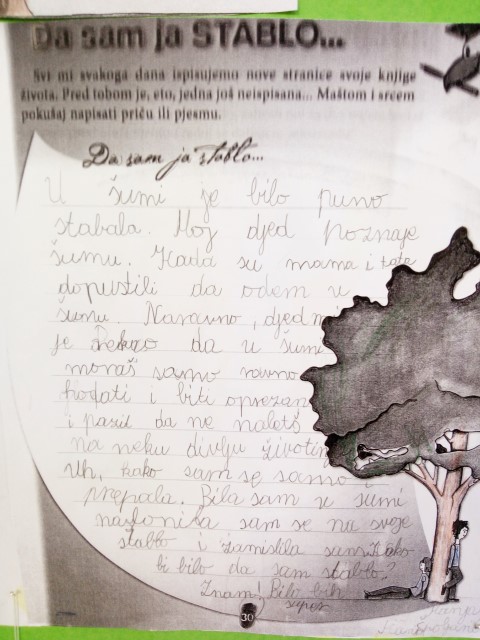 Da sam ja STABLO...
Svi mi svakoga dana ispisujemo nove stranice svoje knjige
života. Pred tobom je, eto, jedna još neispisana... Maštom i srcem
pokušaj napisati priču ili pjesmu.
Da sam ja stablo...
U šumi je bilo puno
stabala. Moj djed poznaje
šumu. Kada su mama i tata
dopustili da odem u
šumu. Naravno, djed m
je rekao da u šumi
moraš samo ravno
hodati i biti oprezan
i pazit da ne naletš
na neku divlju životin
Uh, kako sam se samo
prepala. Bila sam u šumi
naslonila sam se na svoje
stablo i zamislila sam kako
bi bilo da sam stablo?
Znam! Bilo bih
super
30